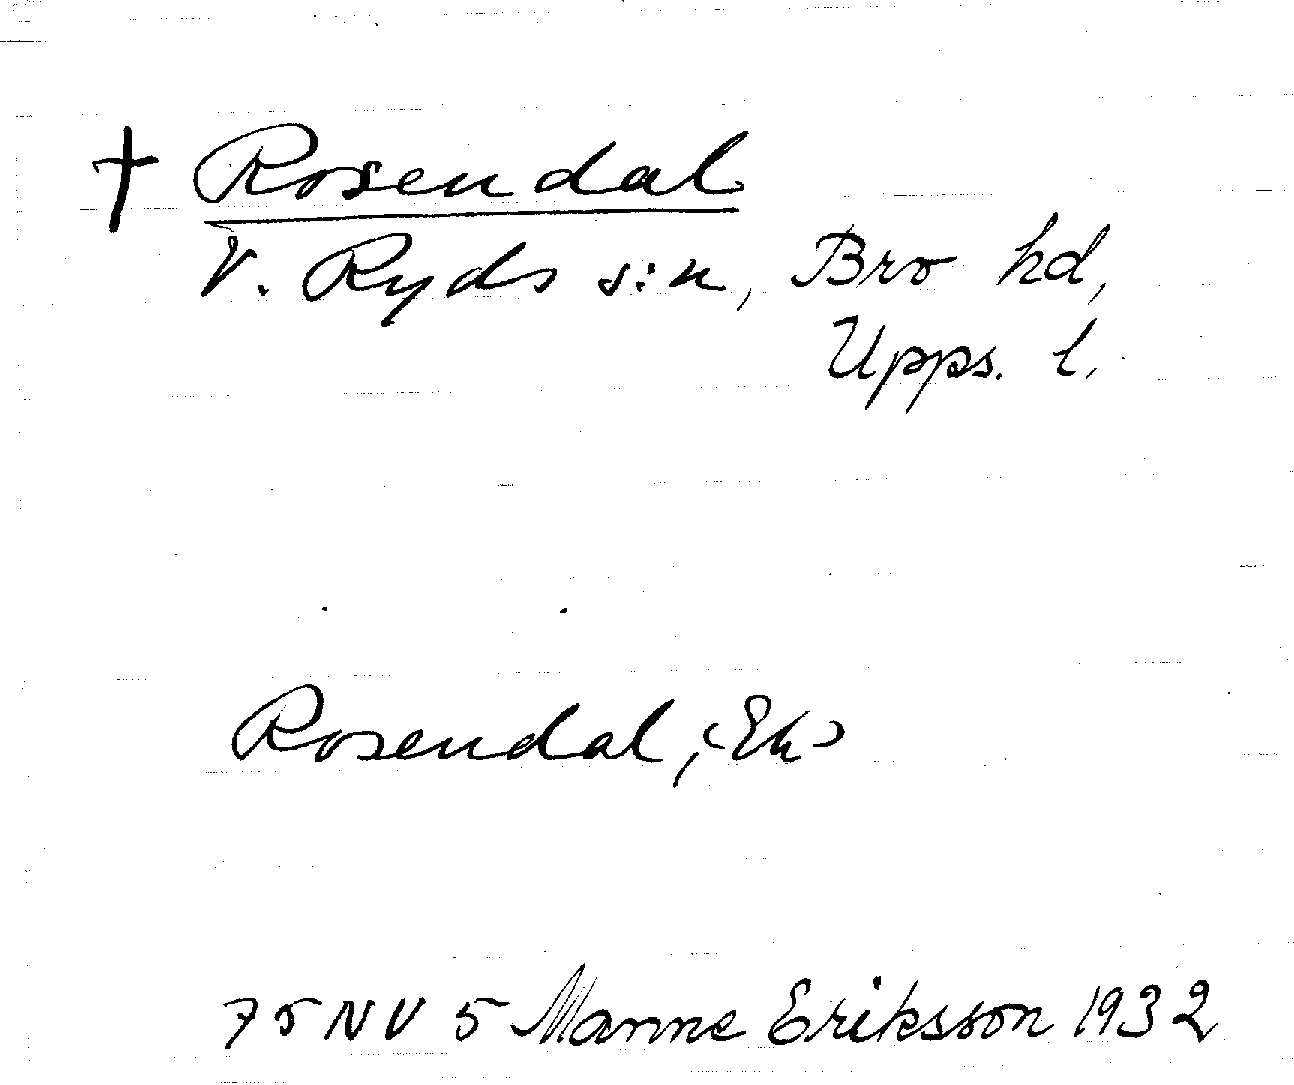 † Rosendal
V. Ryds s:n, Bro hd,
Upps. l.
Rosendal, (Ek)
75 NV 5 Manne Eriksson 1932